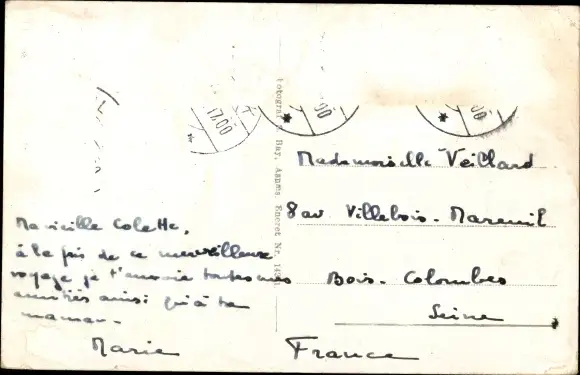 17.00
00
00
Fotograf Bay, Asnæs Eneret Nr. 14
Mademoiselle Veillard
8 av Villebois-Mareuil
Bois-Colombes
Seine
France
Ma vieille Colette,
à la fin de ce merveilleux
voyage je t'envoie toutes mes
amitiés ainsi qu'à ta
maman.
Marie